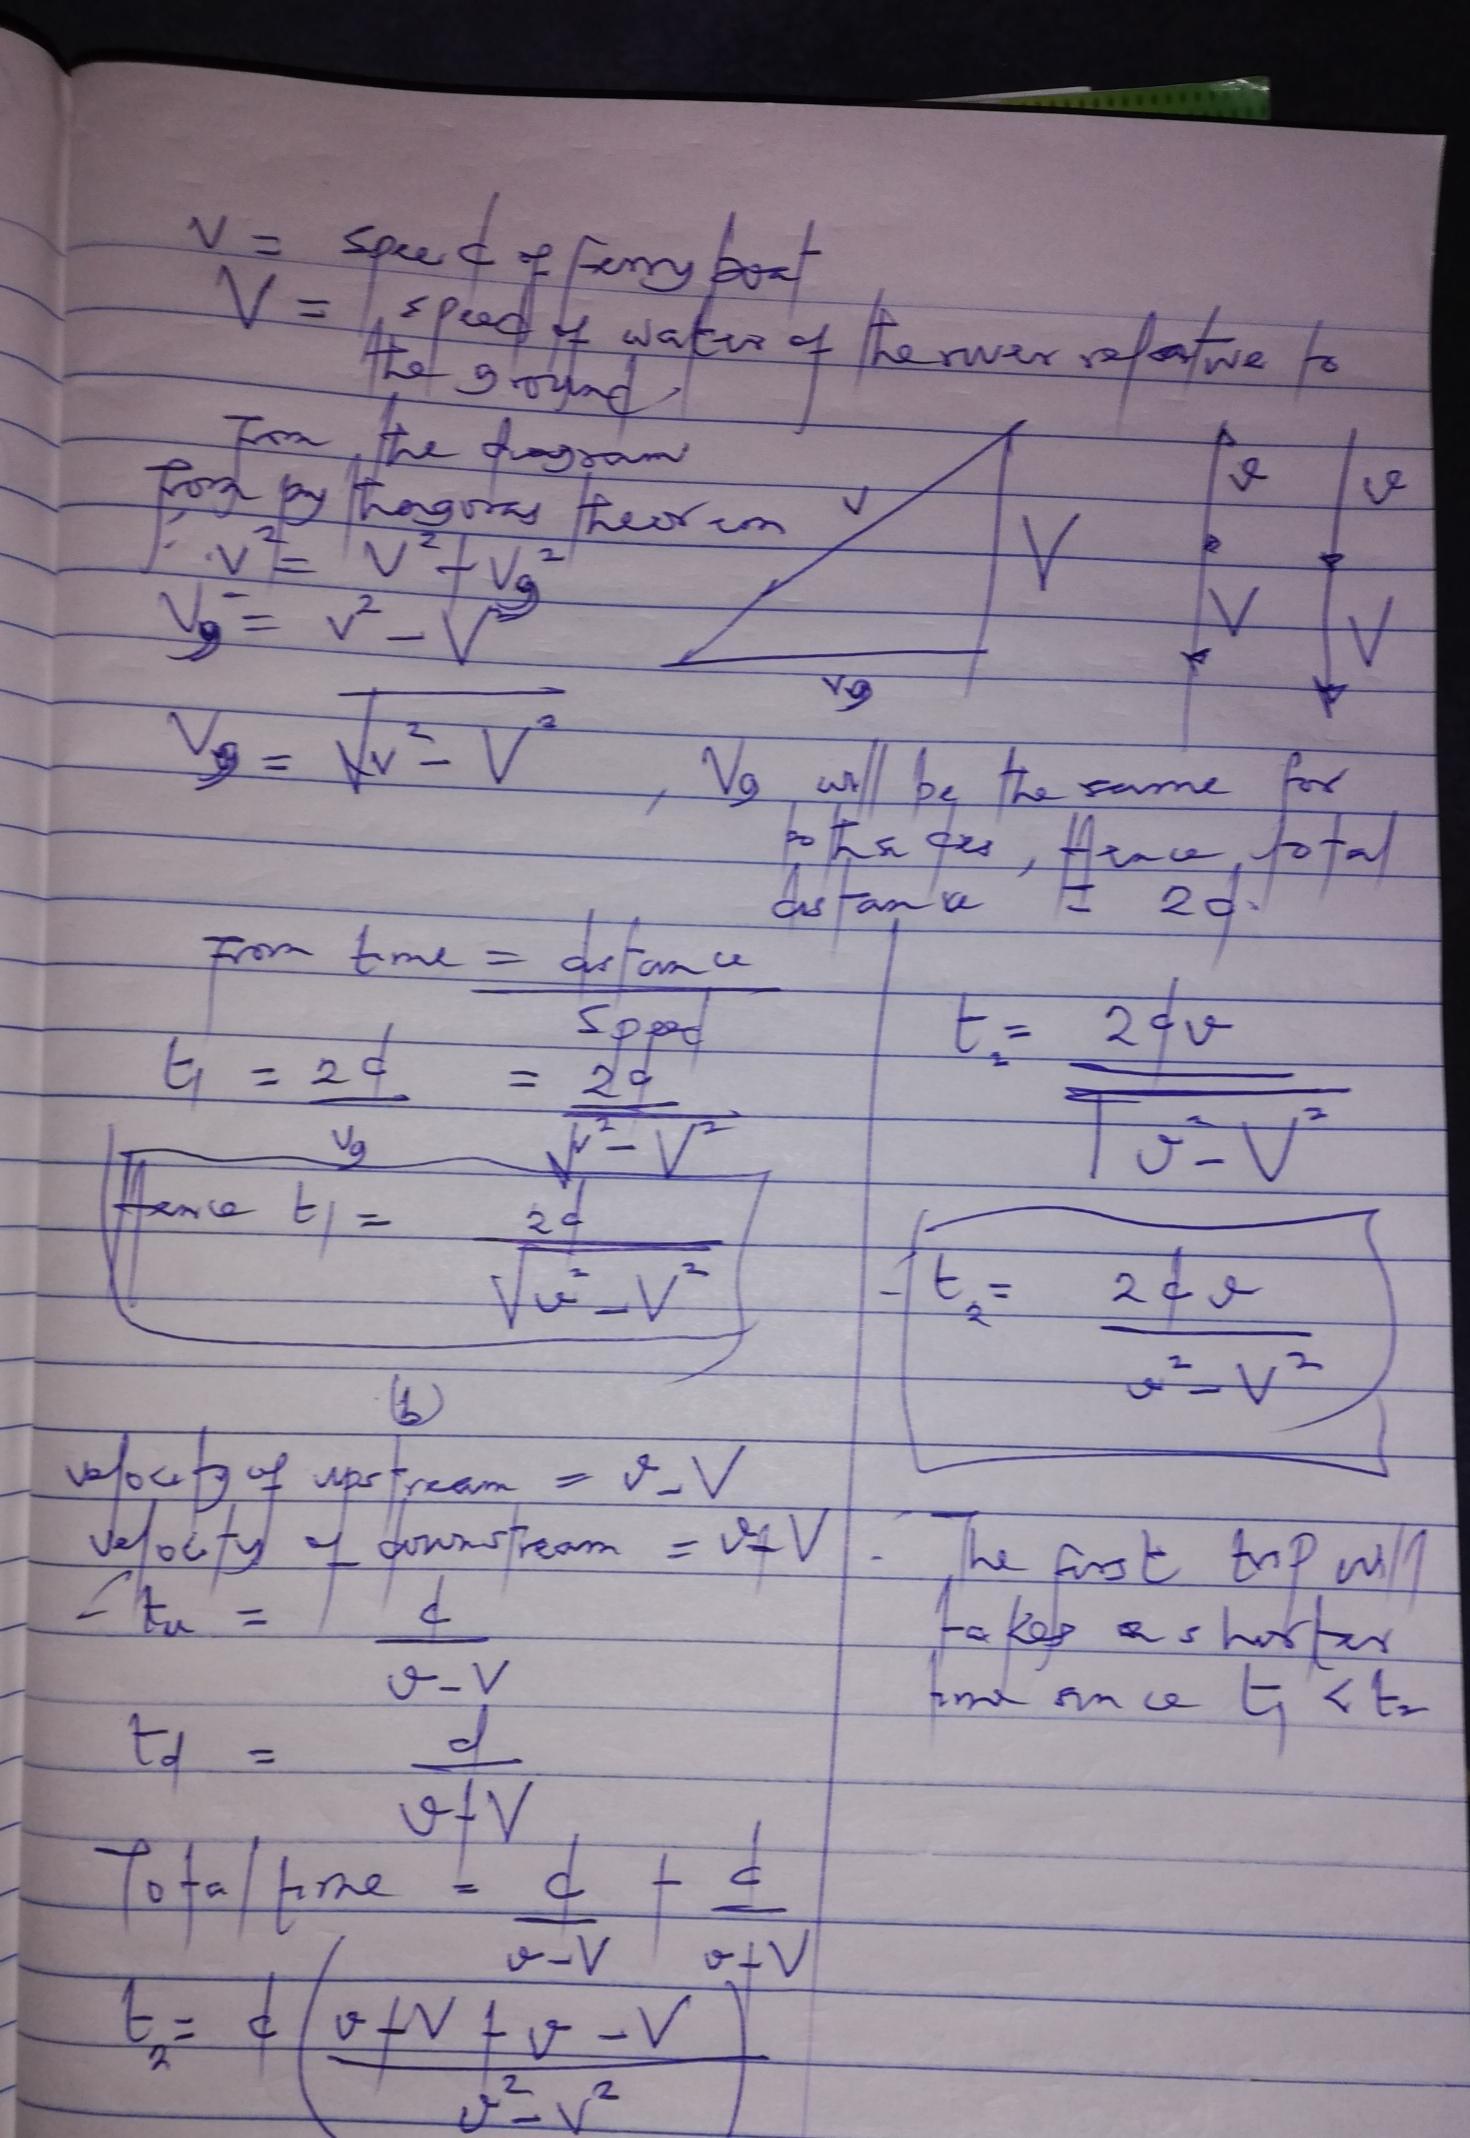 v = speed of ferry boat
V = speed of water of the river relative to
the ground.
From the diagram
From pythagoras theorem
∴ v² = V² + Vg²
Vg² = v² - V²
v
V
vg
v
V
v
V
Vg = √v² - V² , Vg will be the same for
both sides, Hence total
distance = 2d.
From time = distance
Speed
t1 = 2d = 2d
Vg √v² - V²
Hence t1 = 2d
√v² - V²
(b)
velocity of upstream = v - V
velocity of downstream = v + V
- tu = d
v - V
td = d
v + V
Total time = d + d
v - V v + V
t2 = d ( v + V + v - V )
v² - V²
t2 = 2dv
√v² - V²
- t2 = 2dv
v² - V²
- The first trip will
takes a shorter
time since t1 < t2